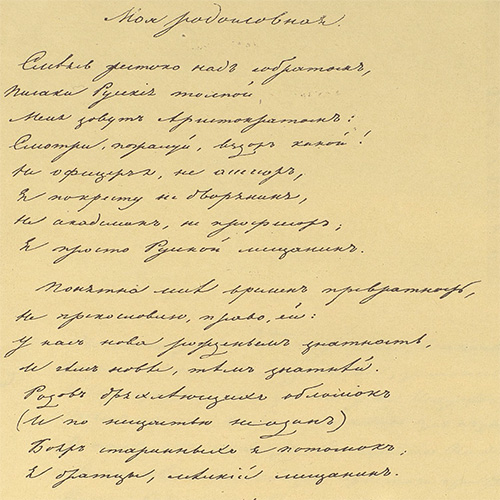 Моя родословная.
Смѣясь жестоко надъ собратомъ,
Писаки Русскіе толпой
Меня зовутъ Аристократомъ:
Смотри, пожалуй, вздоръ какой!
Не офицеръ я, не асессоръ,
Я по кресту не дворянинъ,
Не академикъ, не профессоръ;
Я просто Русской мещанинъ.
Понятна мнѣ временъ превратность,
Не прекословлю, право, ей:
У насъ нова рожденьемъ знатность,
И чѣмъ новѣе, тѣмъ знатнѣй.
Родовъ дряхлѣющихъ обломокъ
(И по нещастью не одинъ)
Бояръ старинныхъ я потомокъ;
Я, братцы, мѣлкій мещанинъ.